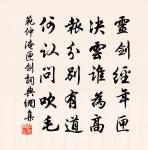 靈劍經年匣
決雲誰為高
報分別有道
何認問吹毛
範仲淹匣劍詞典網集